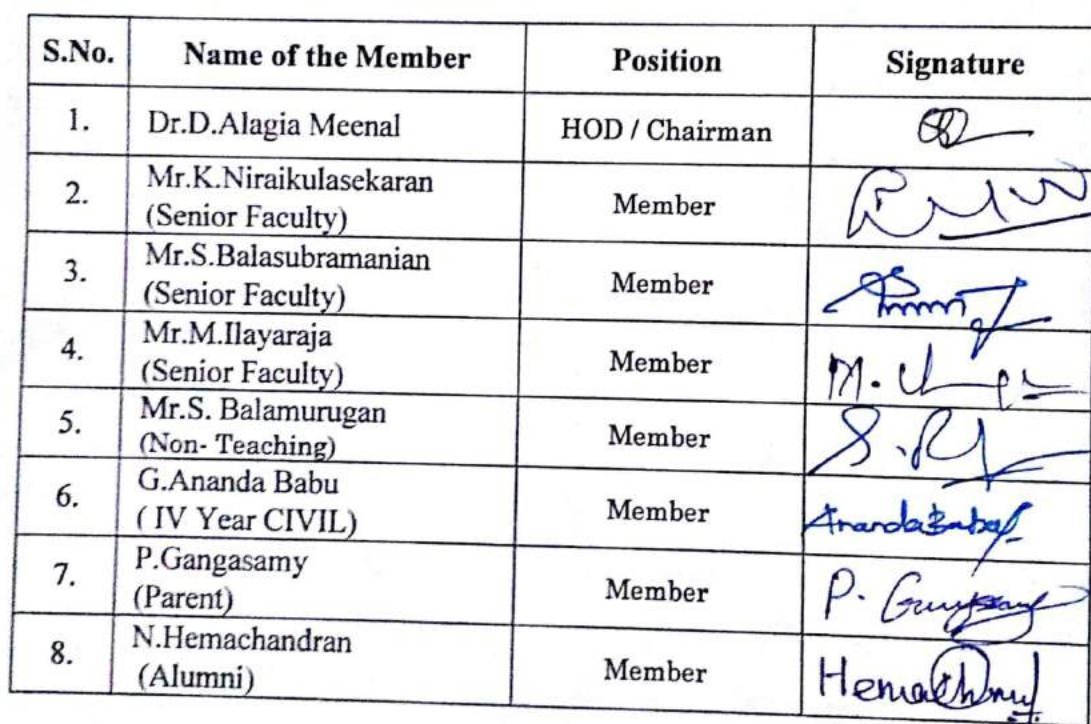 S.No. Name of the Member Position Signature
1. Dr.D.Alagia Meenal HOD / Chairman
2. Mr.K.Niraikulasekaran
(Senior Faculty) Member
3. Mr.S.Balasubramanian
(Senior Faculty) Member
4. Mr.M.Ilayaraja
(Senior Faculty) Member M.
5. Mr.S. Balamurugan
(Non- Teaching) Member S.
6. G.Ananda Babu
( IV Year CIVIL) Member AnandaBabu
7. P.Gangasamy
(Parent) Member P.
8. N.Hemachandran
(Alumni) Member